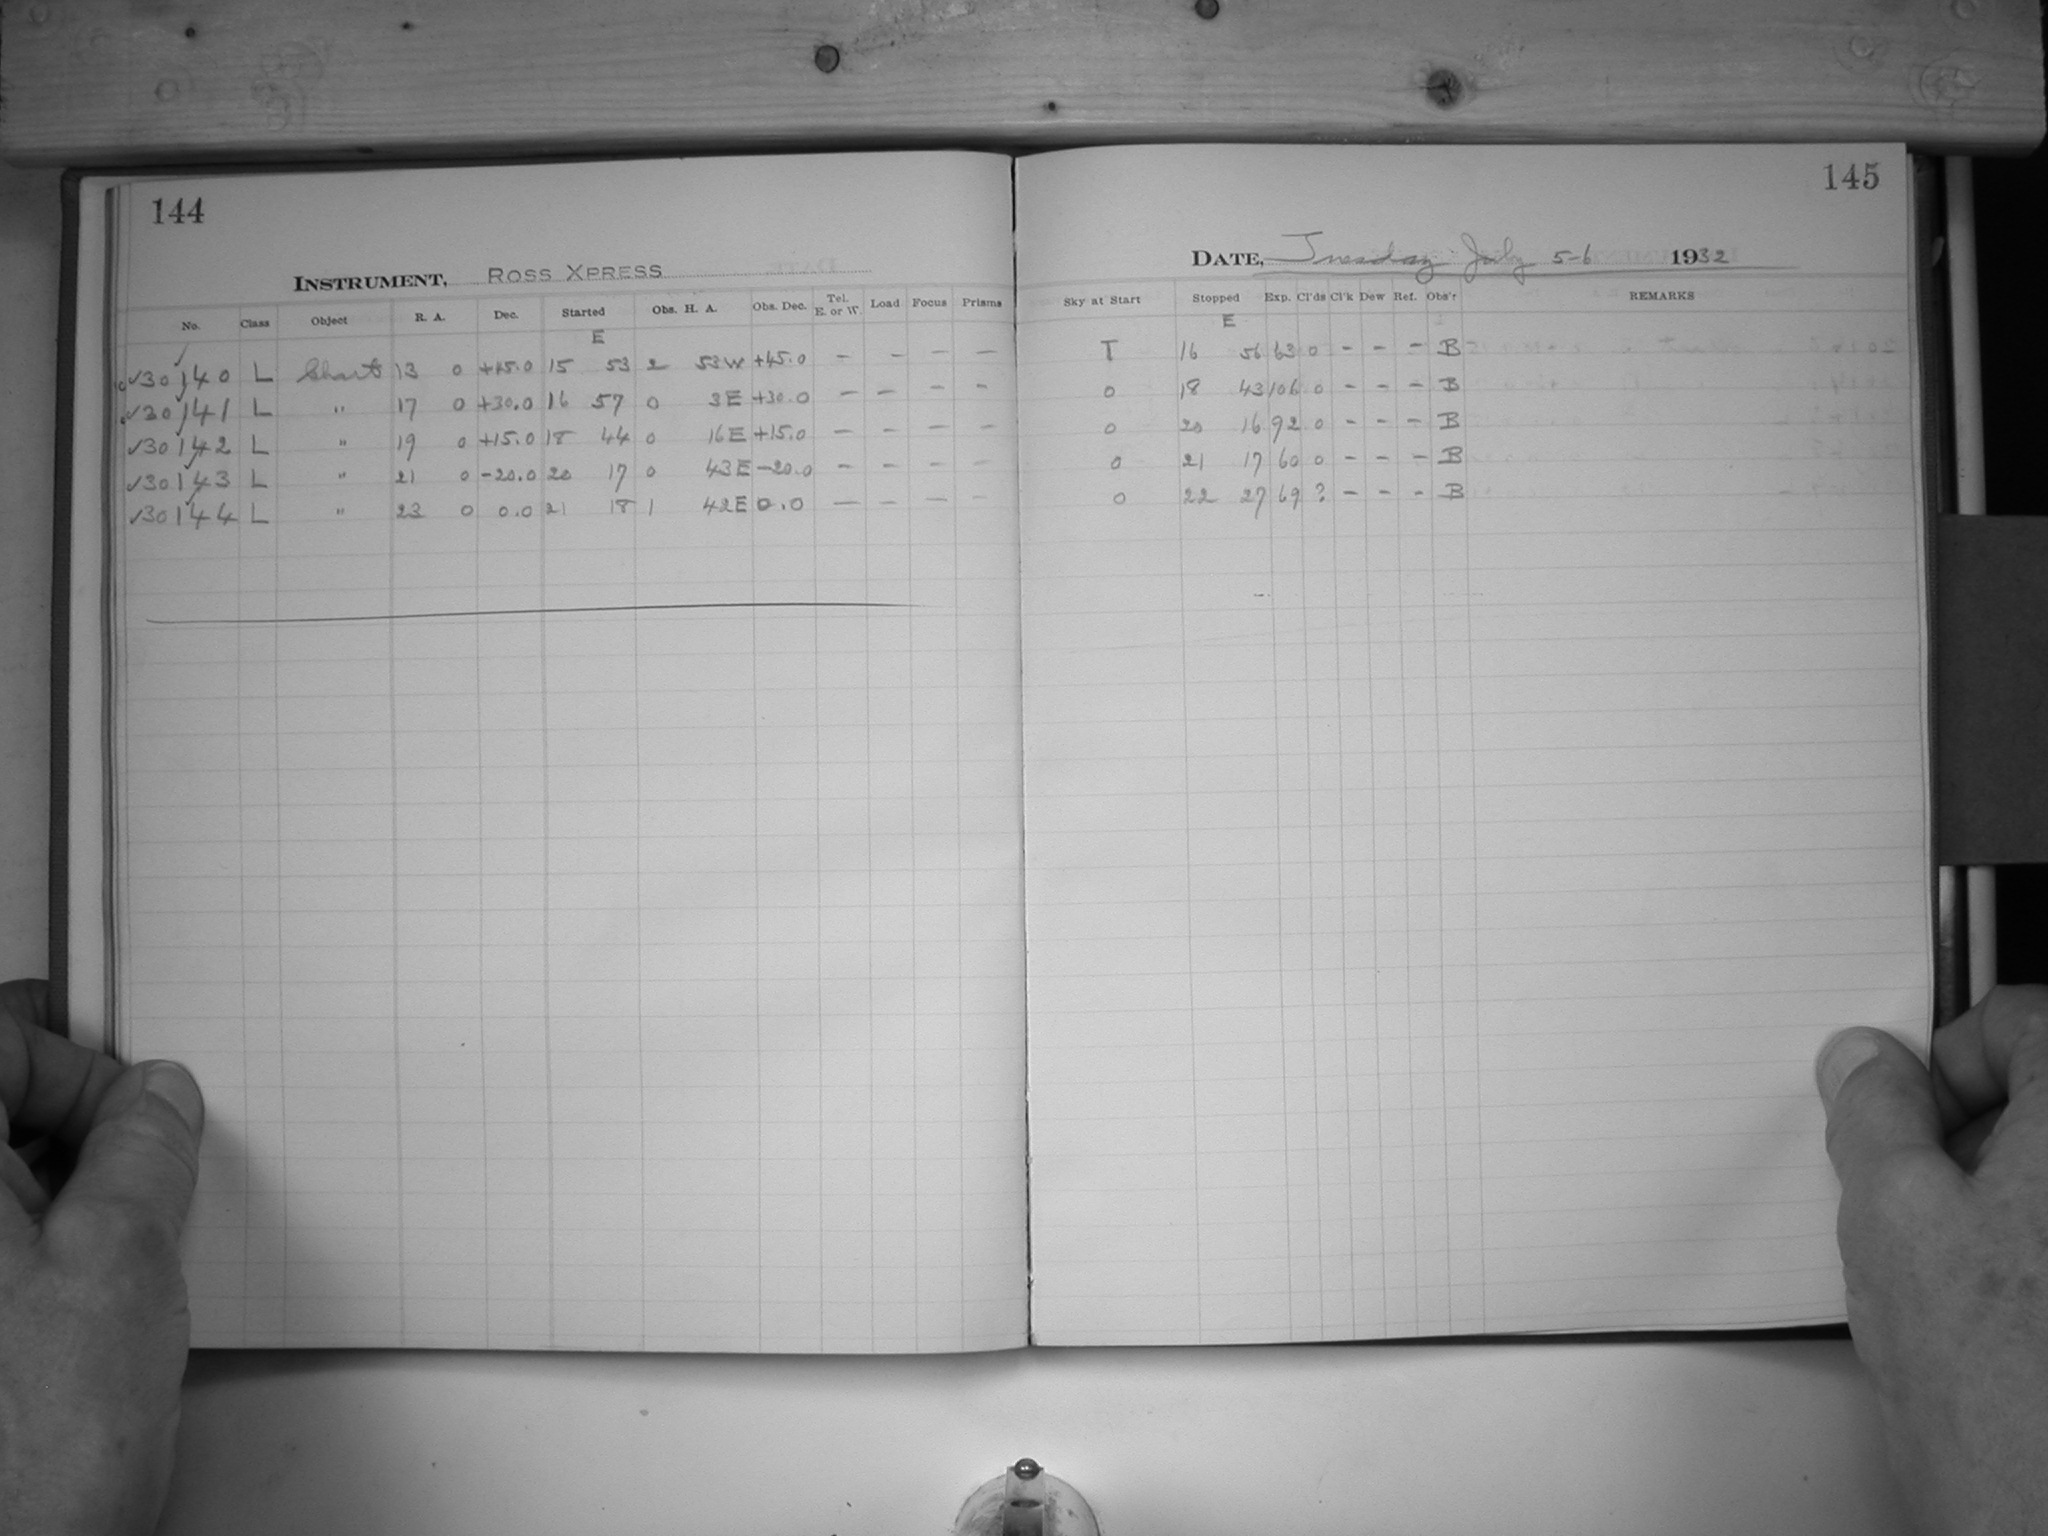 144
INSTRUMENT, ROSS XPRESS
No. Class Object R. A. Dec. Started Obs. H. A. Obs. Dec. Tel. E. or W. Load Focus Prisms
E
✓30140 L Chart 13 0 +45.0 15 53 2 53W +45.0 — — — —
✓30141 L " 17 0 +30.0 16 57 0 3E +30.0 — — — —
✓30142 L " 19 0 +15.0 18 44 0 16E +15.0 — — — —
✓30143 L " 21 0 −20.0 20 17 0 43E −20.0 — — — —
✓30144 L " 23 0 0.0 21 18 1 42E 0.0 — — — —
145
DATE, Tuesday July 5-6 1932
Sky at Start Stopped Exp. Cl'ds Cl'k Dew Ref. Obs'r REMARKS
E
T 16 56 63 0 - - - B
0 18 43 106 0 - - - B
0 20 16 92 0 - - - B
0 21 17 60 0 - - - B
0 22 27 69 ? - - - B